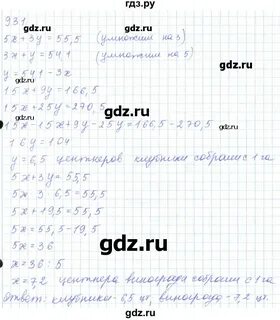 гдз.ру
931
5x + 3y = 55,5 (умножим на 3)
3x + y = 541 (умножим на 5)
y = 541 - 3x
15x + 9y = 166,5
15x + 25y = 270,5
15x - 15x + 9y - 25y = 166,5 - 270,5
16y = 104
y = 6,5 центнеров клубники собрали с 1 га
5x + 3y = 55,5
5x 3 6,5 = 55,5
5x + 19,5 = 55,5
5x = 55,5 - 19,5
5x = 36
x = 36 : 5
x = 7,2 центнера винограда собрали с 1 га
Ответ: клубники - 6,5 цт, виноград - 7,2 цт.
gdz.ru
gdz.ru
gdz.ru
gdz.ru
gdz.ru
gdz.ru
gdz.ru